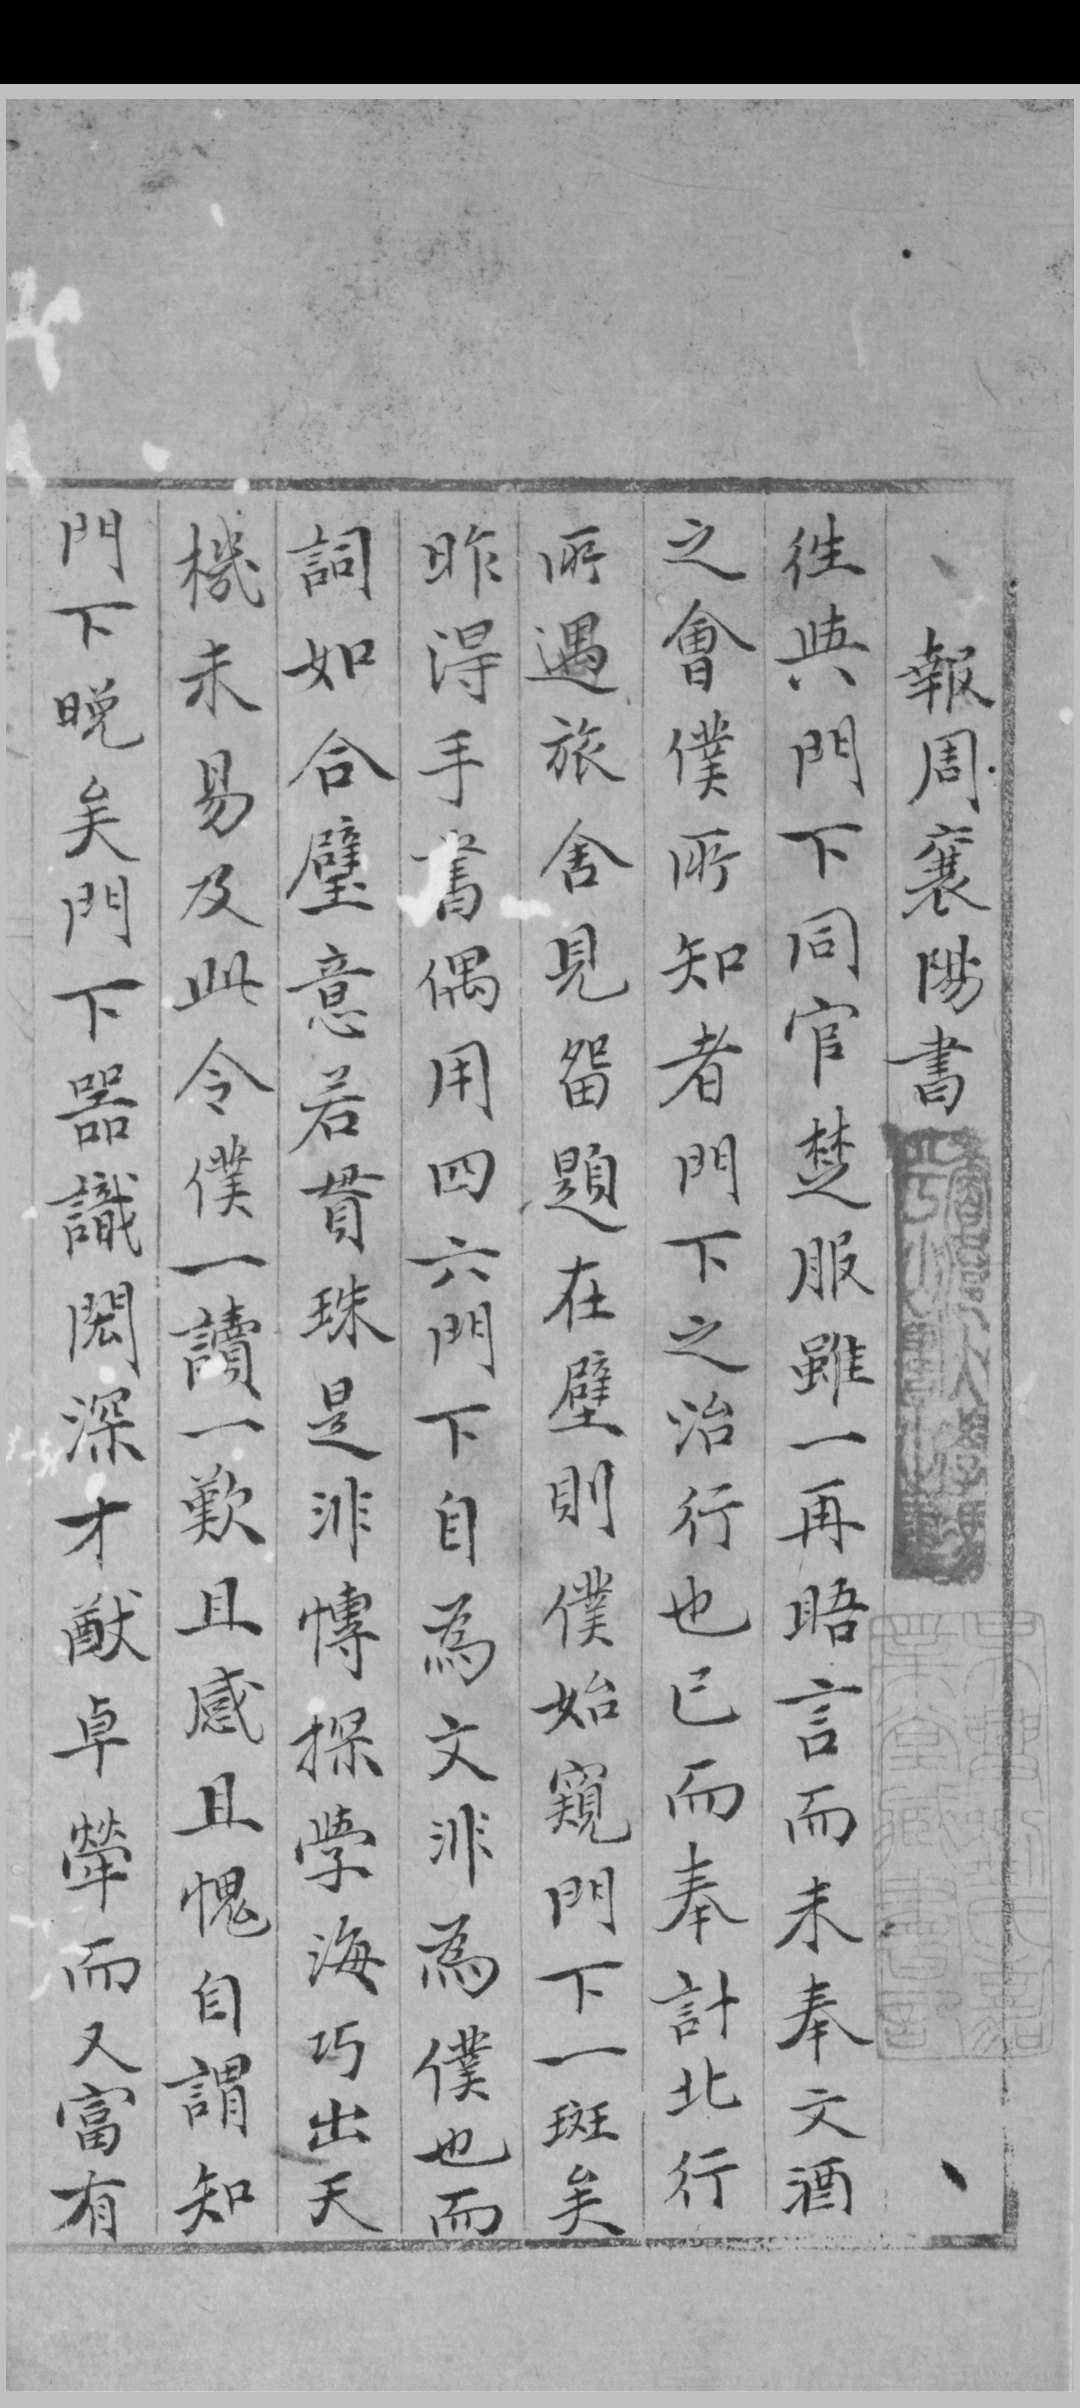 報周襄陽書
徃與門下同官楚服雖一再晤言而未奉文酒
之會僕所知者門下之治行也已而奉計北行
所遇旅舍見畱題在壁則僕始窺門下一斑矣
昨得手書偶用四六門下自為文非為僕也而
詞如合璧意若貫珠是非慱探學海巧出天
機未易及此令僕一讀一歎且感且愧自謂知
門下晚矣門下器識閎深才猷卓犖而又富有